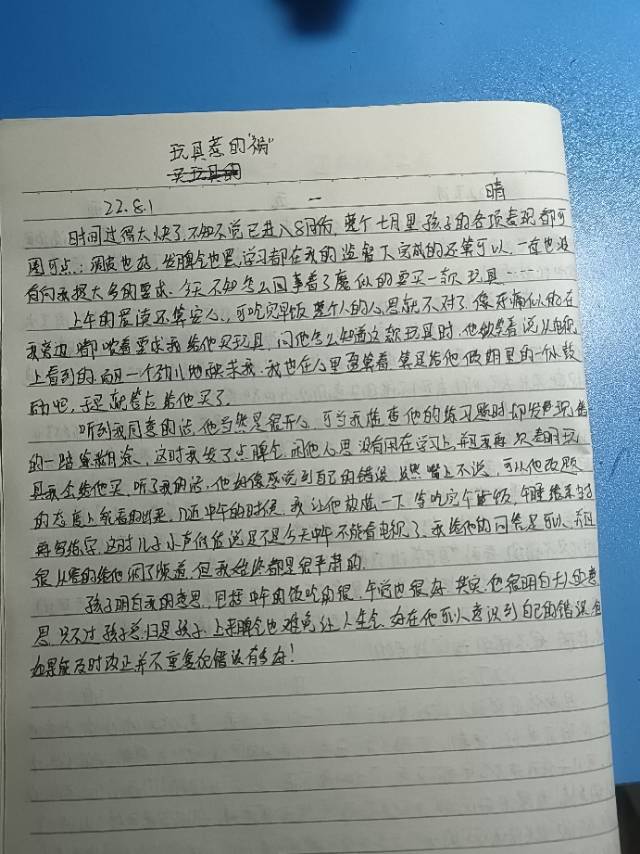 玩具惹的"祸"
22.8.1 一 晴
时间过得太快了,不知不觉已进入8月份,整个七月里孩子的各项表现都可
圈可点:调皮也好,发脾气也罢,学习都在我的监督下完成的还算可以,一直也没
有向我提太多的要求。今天不知怎么回事着了魔似的要买一款玩具……
上午的晨读还算安心,可吃完早饭整个人的心思就不对了,像牙痛似的在
我旁边嘟哝着要求我给他买玩具,问他怎么知道这款玩具时,他傲笑着说从电视
上看到的,而且一个劲儿地央求我。我也在心里盘算着,算是给他假期里的一份鼓
励吧,于是就答应给他买了。
听到我同意的话,他当然是很开心,可当我检查他的练习题时却发现错
的一踏糊涂,这时我发了点脾气,闹他心思没有用在学习上,并且我再次表明玩
具我会给他买,听了我的话,他好像感觉到自己的错误,虽然嘴上不说,可从他改题
的态度上能看的出来,临近中午的时候,我让他放松一下,等吃完午饭,午睡结束后
再写练字,这时儿子小声低估说是不是今天中午不能看电视了,我给他的回答是可以,并且
很从容的给他调了频道,但我始终都是很严肃的。
孩子明白我的意思,包括中午的饭吃的很,午觉也很好,其实,他很明白大人的意
思,只不过孩子总归是孩子,上来脾气也难免让人生气,好在他可以意识到自己的错误,
如果能及时改正并不重复犯错该有多好!